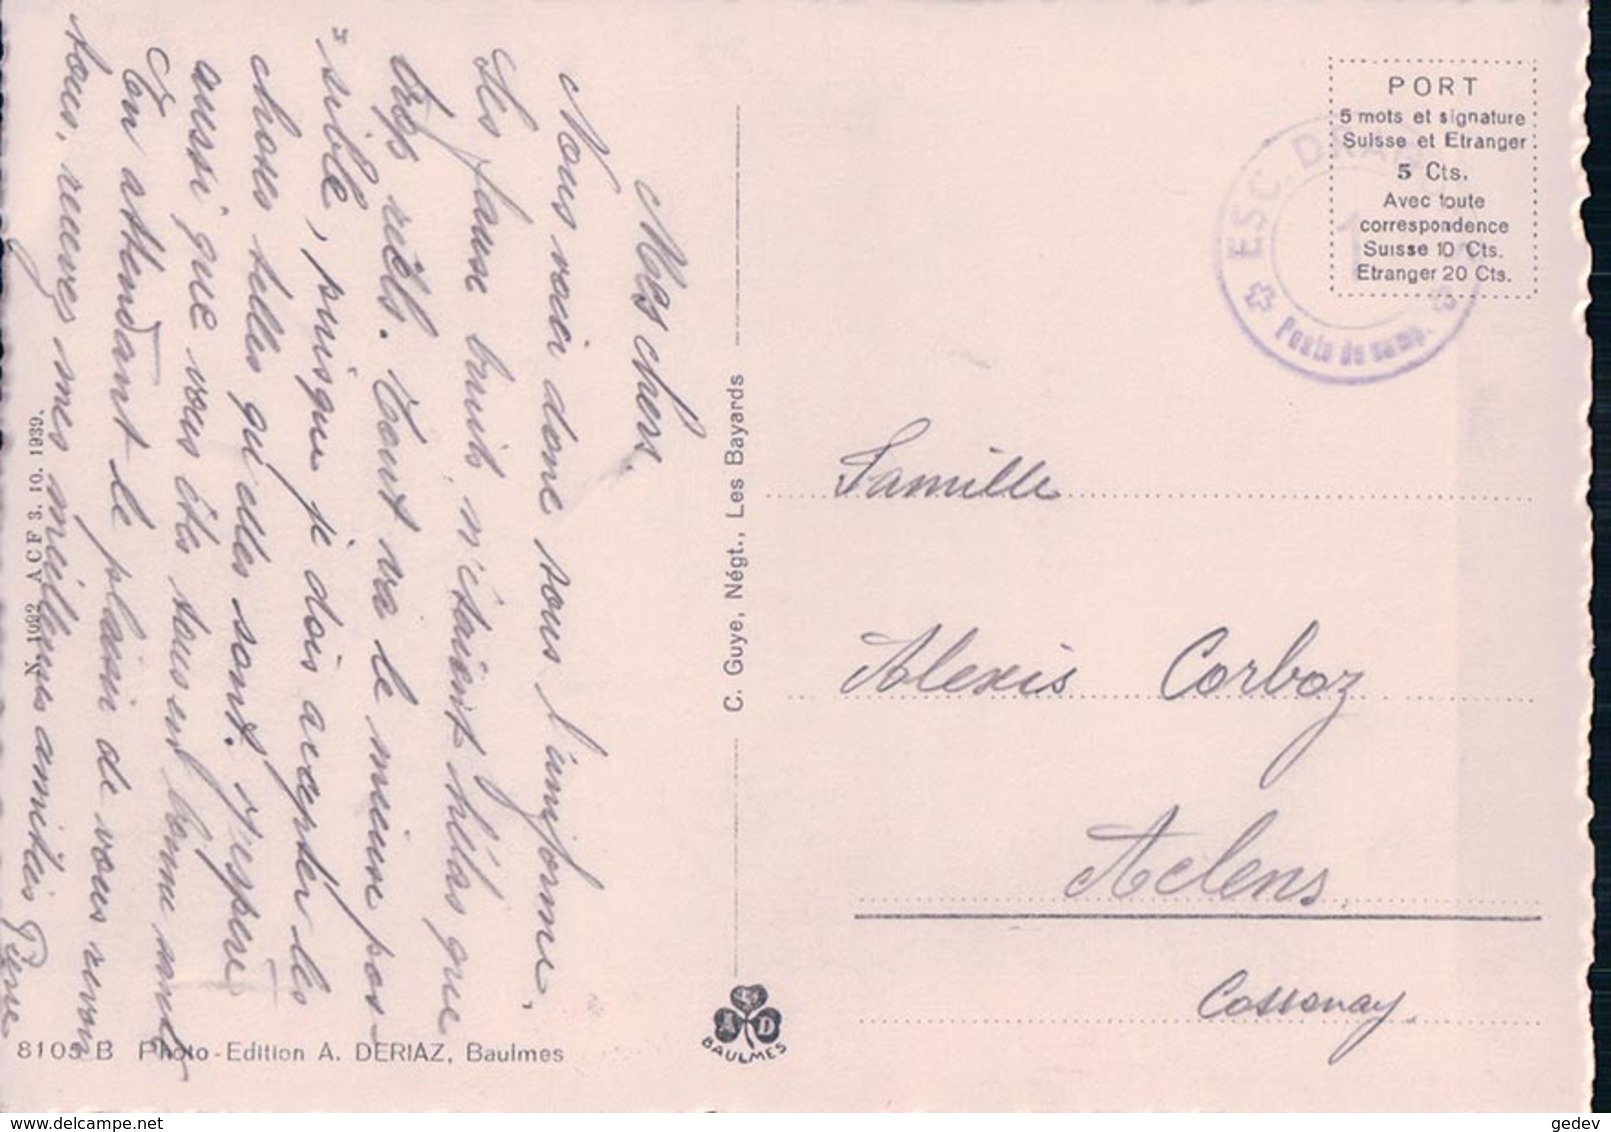 Mes chers.
Nous voici donc sous l'uniforme.
Les faux bruits n'étaient hélas que
trop réels. Tout va le mieux pos-
"sible, puisque je dois accepter les
choses telles qu'elles sont. J'espère
aussi que vous êtes tous en bonne santé
En attendant le plaisir de vous revoir
tous, recevez mes meilleures amitiés Pierre
N 1092 A C F 3. 10. 1939.
8105 B Photo-Edition A. DERIAZ, Baulmes
C. Guye, Négt., Les Bayards
A D
BAULMES
PORT
5 mots et signature
Suisse et Etranger
5 Cts.
Avec toute
correspondence
Suisse 10 Cts.
Etranger 20 Cts.
ESC. DRAG.
Poste de camp.
Famille
Alexis Corboz
Aclens
Cossonay.
gedev